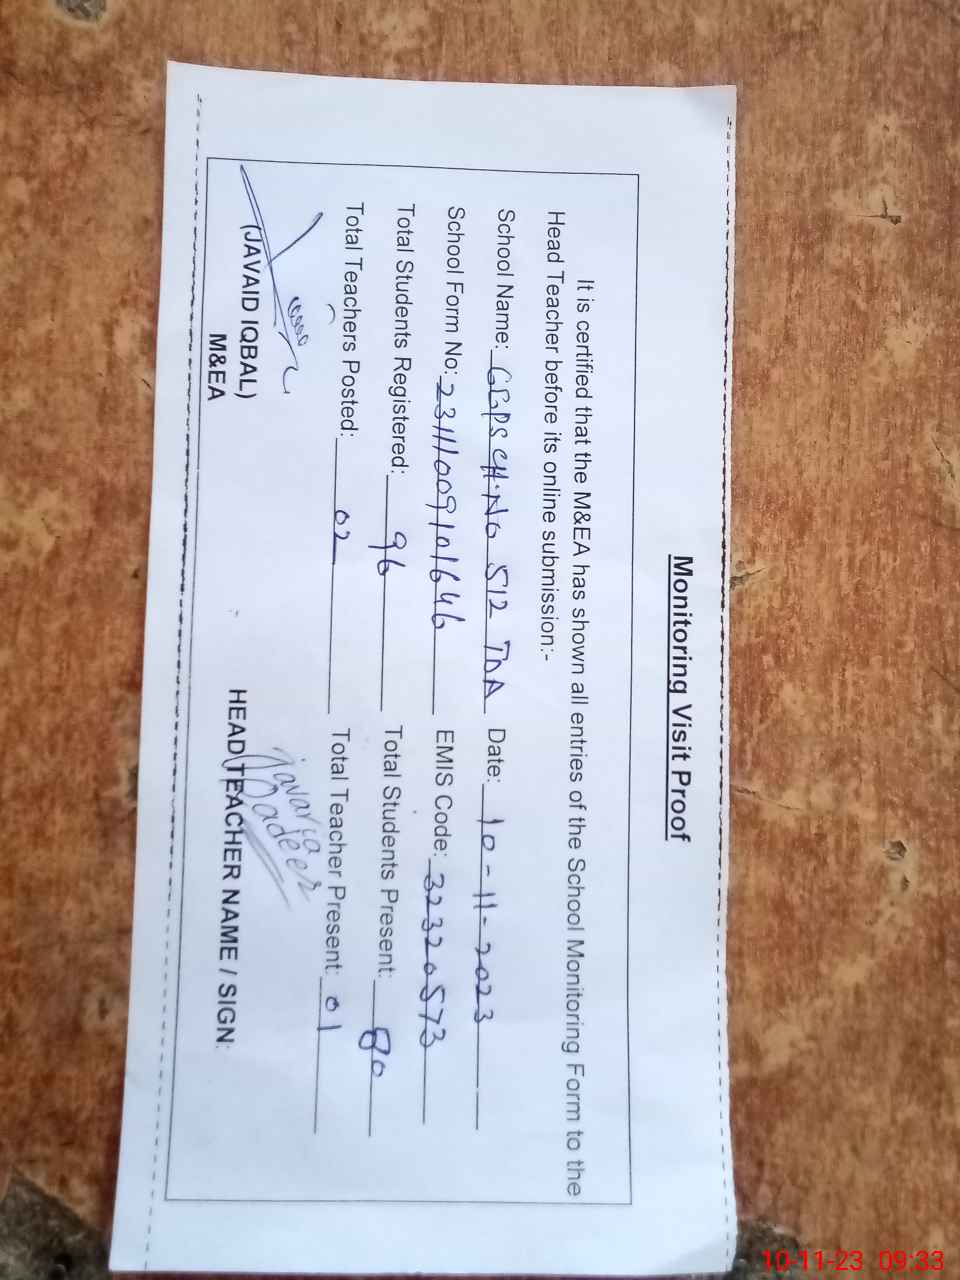 Monitoring Visit Proof
It is certified that the M&EA has shown all entries of the School Monitoring Form to the
Head Teacher before its online submission:-
School Name: GGPS CH.No 512 TDA Date: 10-11-2023
School Form No: 23111009101646 EMIS Code: 32320573
Total Students Registered: 96 Total Students Present: 80
Total Teachers Posted: 02 Total Teacher Present: 01
javaria
Qadeer
(JAVAID IQBAL) HEAD TEACHER NAME / SIGN:
M&EA
10-11-23 09:33